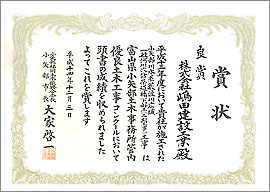 賞状
良賞
株式会社嶋田建設工業殿
平成十三年度において貴社が施工された
は
富山県小矢部土木事務所管内
優良土木工事コンクールにおいて
頭書の成績を収められました
よってこれを賞します
平成十四年十二月二日
大家啓一